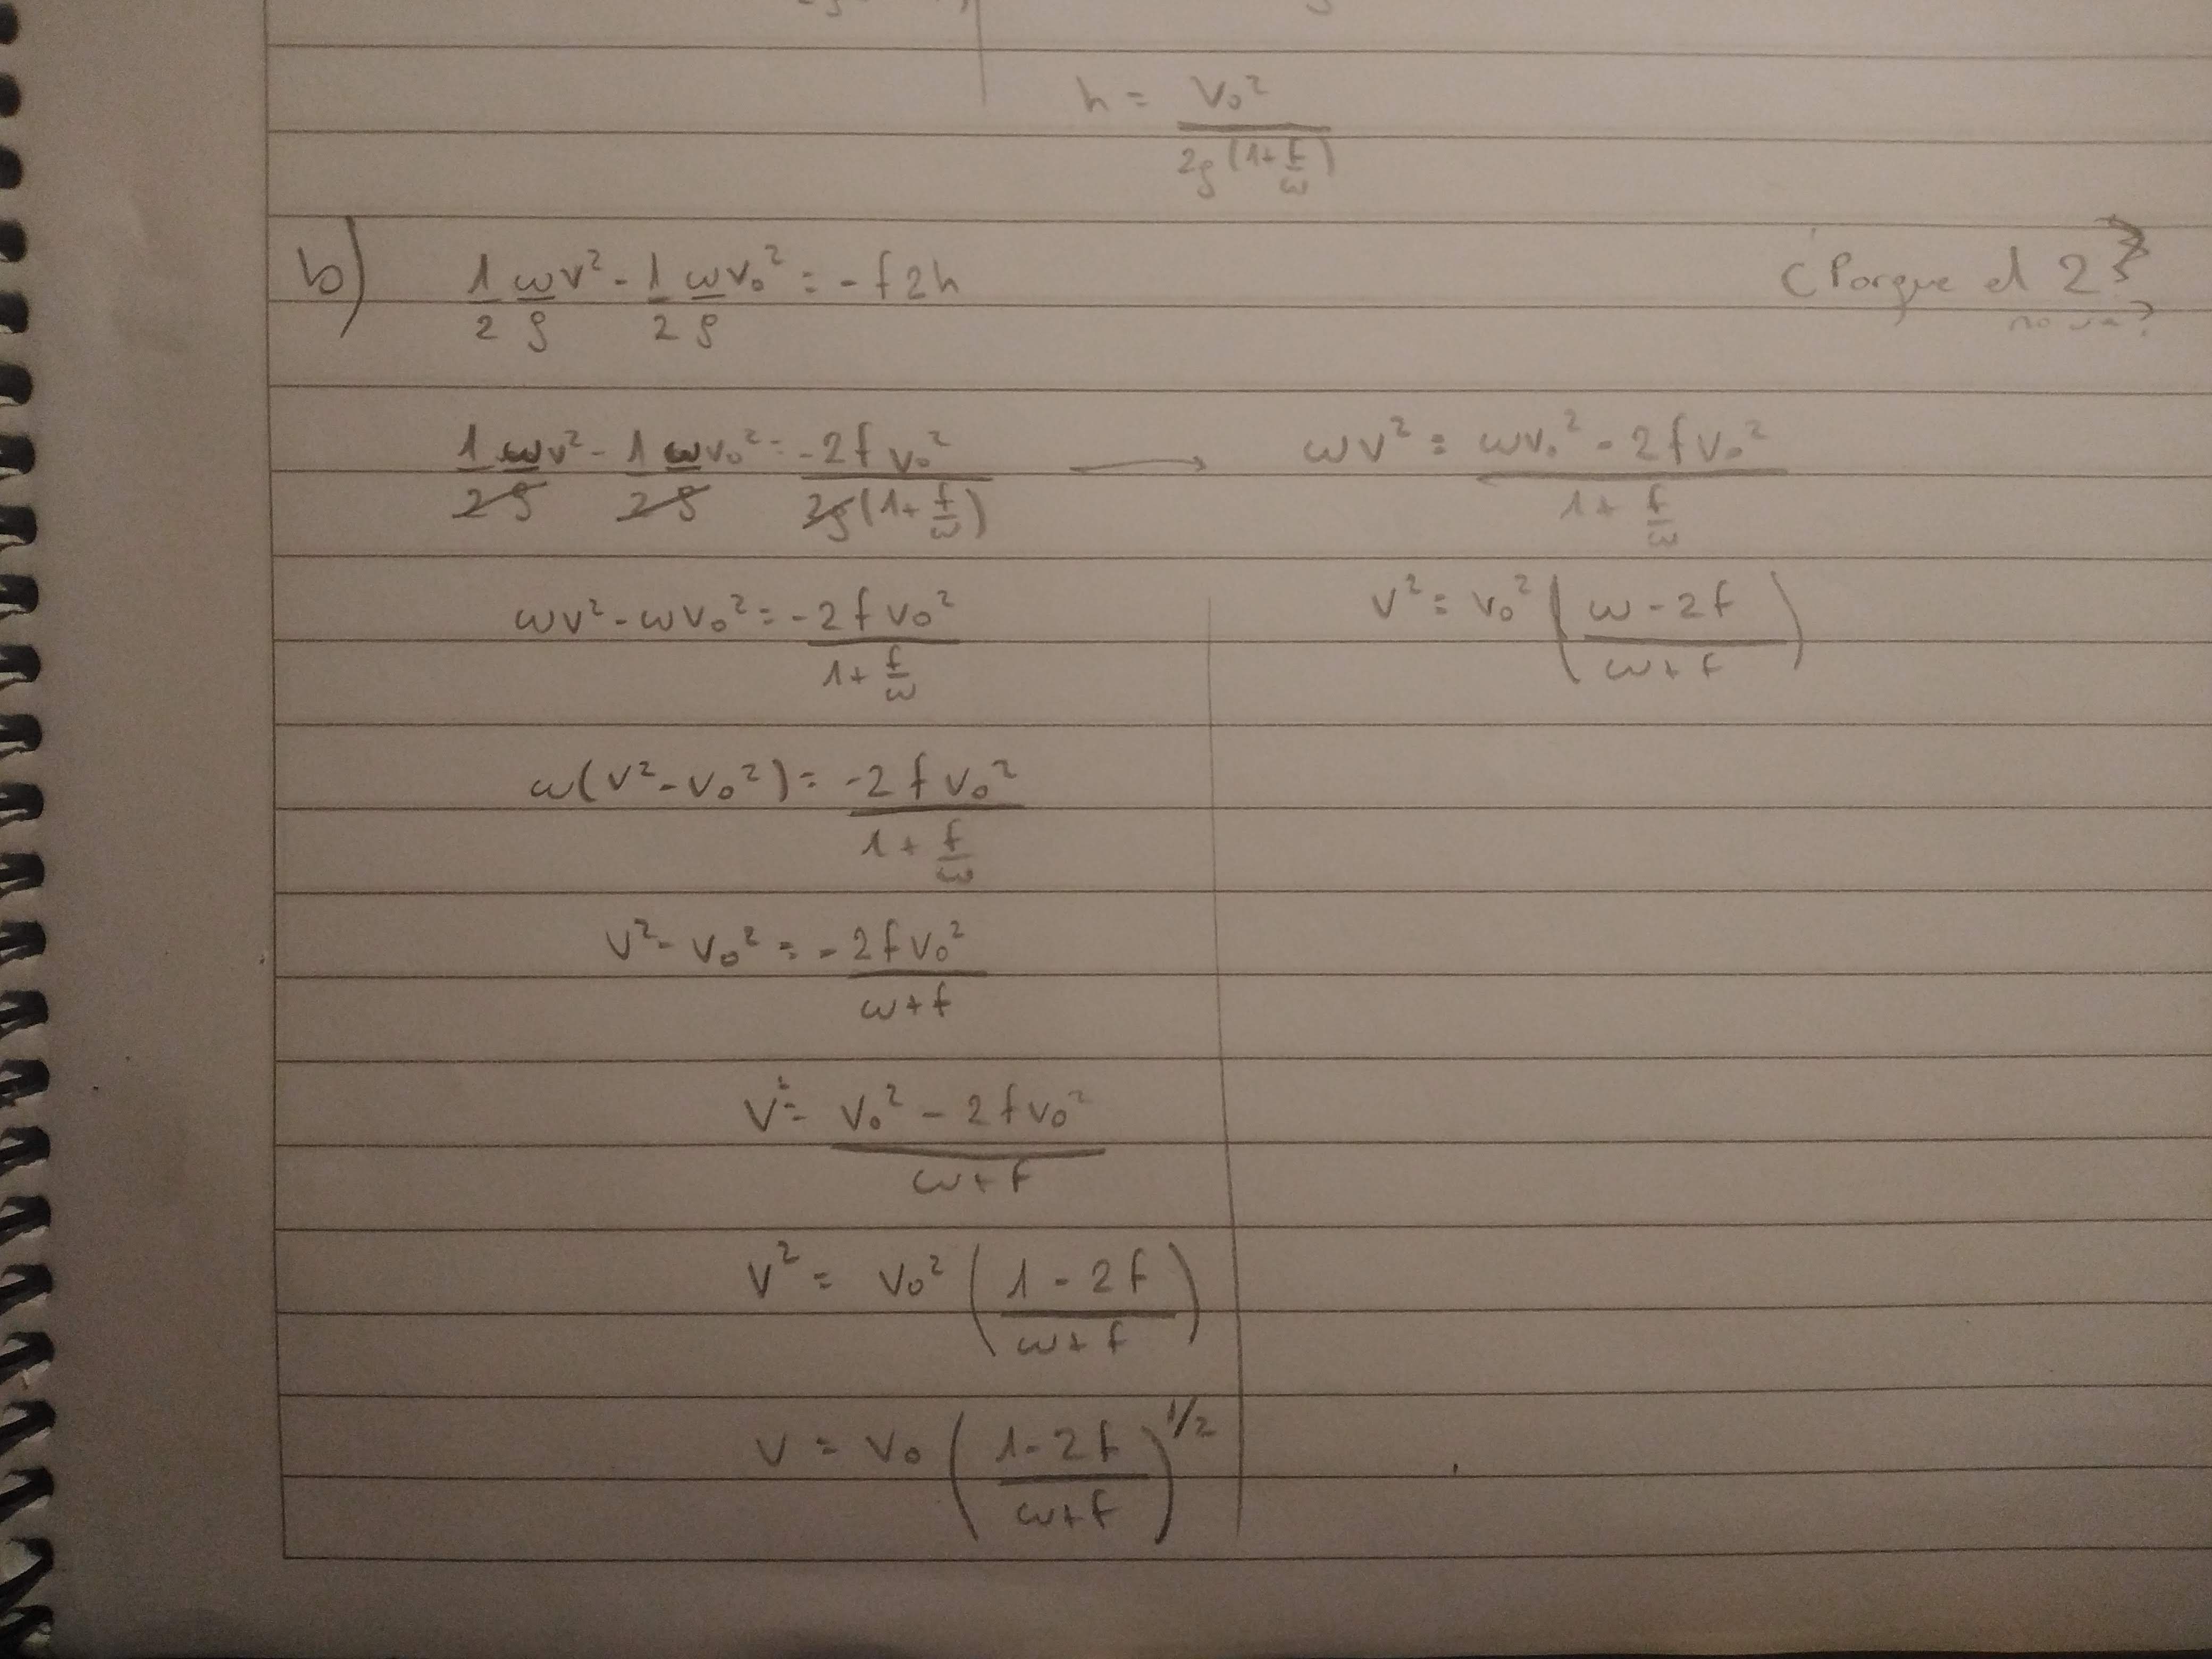 h = v₀² / 2g(1+f/ω)
b) 1/2 ω/g v² - 1/2 ω/g v₀² = -f2h (Porque el 2?
1/2 ω/g v² - 1/2 ω/g v₀² = -2fv₀² / 2g(1+f/ω) → ωv² = ωv₀² - 2fv₀² / 1+f/ω
ωv² - ωv₀² = -2fv₀² / 1+f/ω
v² = v₀² (ω-2f / ω+f)
ω(v² - v₀²) = -2fv₀² / 1+f/ω
v² - v₀² = -2fv₀² / ω+f
v² = v₀² - 2fv₀² / ω+f
v² = v₀² (1-2f / ω+f)
v = v₀ (1-2f / ω+f)^1/2